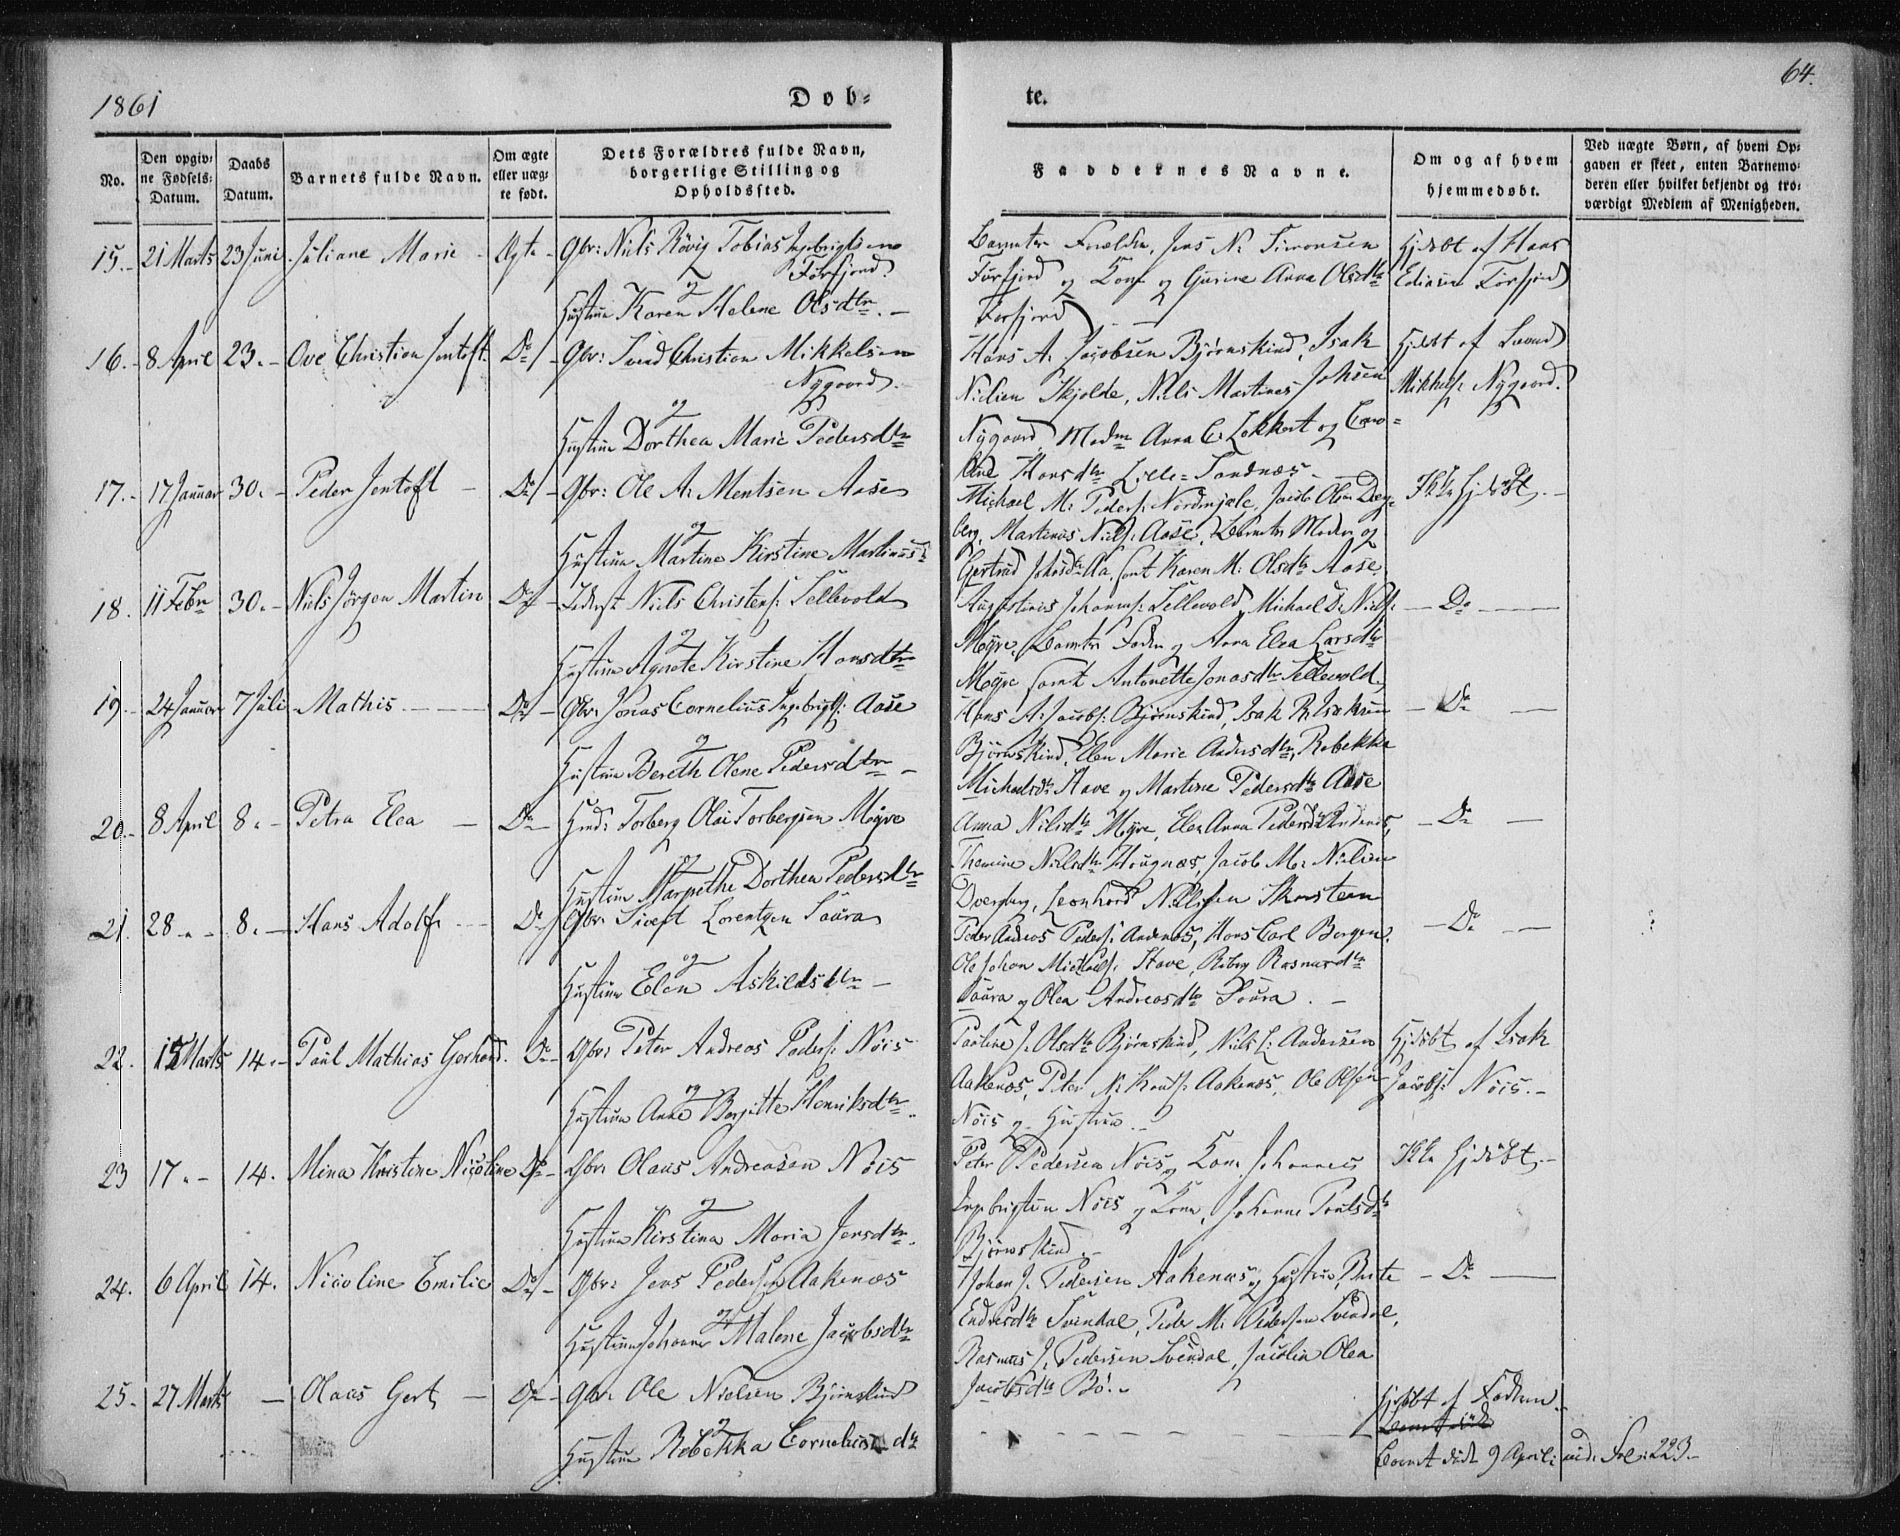 1861
Døb-
te.
64.
No.
Den opgiv-
ne Fødsels-
Datum.
Daabs
Datum.
Barnets fulde Navn.
Om ægte
eller uæg-
te født.
Dets Forældres fulde Navn,
borgerlige Stilling og
Opholdssted.
Faddernes Navne.
Om og af hvem
hjemmedøbt.
Ved uægte Børn, af hvem Op-
gaven er skeet, enten Barnemo-
deren eller hvilket bekjendt og tro-
værdigt Medlem af Menigheden.
15. 21 Marts 23 Juni Juliane Marie Ægte Gbr: Niels Røvig Tobias Ingebrigtsen
Forfjord
og
Hustru Karen Helene Olsdtr.
Barnets Forældre, Jens N. Simonsen
Forfjord og Kone og Gurine Anna Olsdtr
Forfjord
Hjdøbt af Hans
Forfjord
16. 8 April 23. Ove Christian Jentoft Do Gbr: Christian Mikkelsen
Nygaard
og
Hustru Dorthea Marie Pedersdtr
Hans A. Jacobsen Bjørnskind, Isak
Nielsen Skjolde, Niels Martinus Johsen
Nygaard, Madm Anna C. Lokkert og Caro-
line Hansdtr Lille-Sandnæs
Hjdøbt af
Mikkels: Nygaard.
17. 17 Januar 30. Peder Jentoft Do Gbr: Ole A. Mentsen Aase
og
Hustru Martine Kirstine Martinusd
Michael M. Peders: Nordmjele, Jacob Olsen
berg, Martinus Niels: Aase, Barnets Moder og
Gertrud samt Karen M. Olsdtr Aase
Ikke Hjdøbt.
18. 11 Febr 30. Niels Jørgen Martin Do Niels Christens: Sellevold
og
Hustru Agnete Kirstine Hansdtr
Augustinus Johanns: Sellevold, Michael D. Niels:
Myre, Barnets Fader og Anna Elea Larsdtr
Myre samt Antonette Jonasdtr Sellevold
Do
19. 24 Januar 7 Juli Mathis Do Gbr: Jonas Cornelius Ingebrigts: Aase
og
Hustru Bereth Olene Pedersdtr
Hans A. Jacobs: Bjørnskind, Isak
Bjørnskind, Elen Marie Andersdtr, Rebekka
Michaelsdtr Stave og Martine Pedersdtr Aase
Do
20. 8 April 8. Petra Elea Do Torberg Olai Torbergsen Myre
og
Hustru Margrethe Dorthea Pedersdtr
Anna Nilsdtr Myre, Elen Anna Pedersdtr Andenæs,
Nielsdtr Haugnæs, Jacob M. Nielsen
Dverberg, Leonhard Nielsen Skarsteen
Do
21. 28 8. Hans Adolf Do Gbr: Sivert Lorentzen Saura
og
Hustru Elen Askildsdtr
Peder Andreas Peders: Andenæs, Hans Carl Borgen,
Ole Johan Michaels: Stave, Rasmusdtr
Saura og Olea Andreasdtr Saura.
Do
22. Marts 14. Paul Mathias Gerhard. Do Gbr: Peter Andreas Peders: Nøis
og
Hustru Anne Bergitte Henriksdtr
Pauline J. Olsdtr Bjørnskind, Niels L. Andersen
Aakenæs, Peter N. Knuts: Aakenæs, Ole Olsen
Nøis og Hustru.
Hjdøbt af Isak
Jacobs: Nøis.
23 17 14. Mina Kristine Nicoline Do Gbr: Olaus Andreasen Nøis
og
Hustru Kirstina Maria Jensdtr.
Peter Pedersen Nøis og Kone, Johannes
Ingebrigtsen Nøis og Kone, Johanne Paulsdtr
Bjørnskind.
Ikke Hjdøbt.
24. 6 April 14. Nicoline Emilie Do Gbr: Jens Pedersen Aakenæs
og
Hustru Johanna Malene Jacobsdtr
Johan J. Pedersen Aakenæs og Hustru, Berte
Endresdtr Svendal, Peder M. Pedersen Svendal,
Rasmus J. Pedersen Svendal, Jacolia Olea
Jacobsdtr Bø.
Do
25. 27 Marts Olaus Gert Do Gbr: Ole Nielsen Bjørnskind
og
Hustru Rebekka Corneliusdtr
Hjdøbt af Faderen.
Barnet død 9 April: vid. Fol: 223.